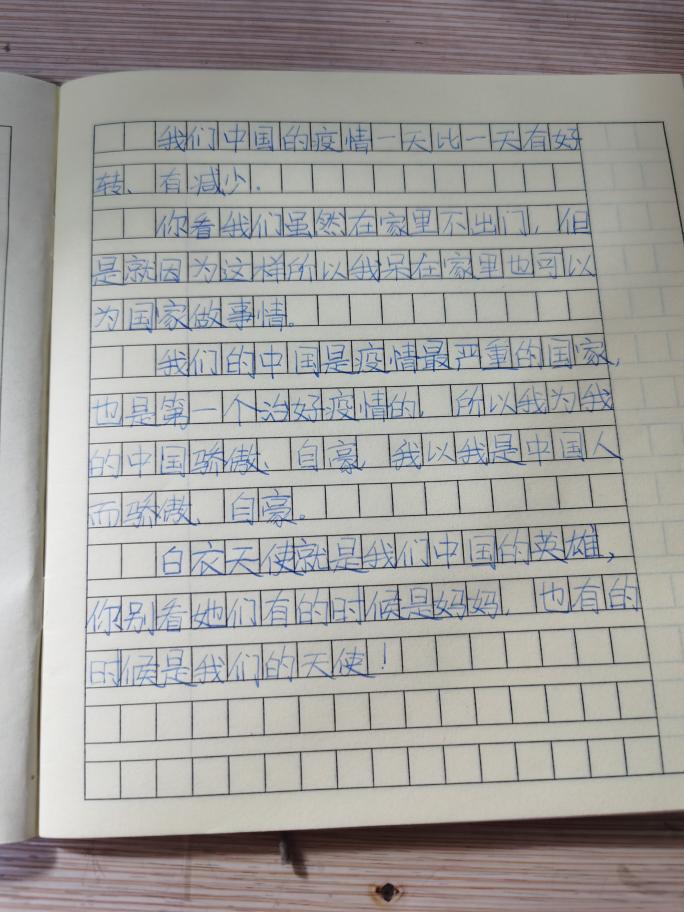 我们中国的疫情一天比一天有好
转、有减少.
你看我们虽然在家里不出门，但
是就因为这样所以我呆在家里也可以
为国家做事情。
我们的中国是疫情最严重的国家，
也是第一个治好疫情的，所以我为我
的中国骄傲、自豪，我以我是中国人
而骄傲、自豪。
白衣天使就是我们中国的英雄，
你别看她们有的时候是妈妈，也有的
时候是我们的天使！